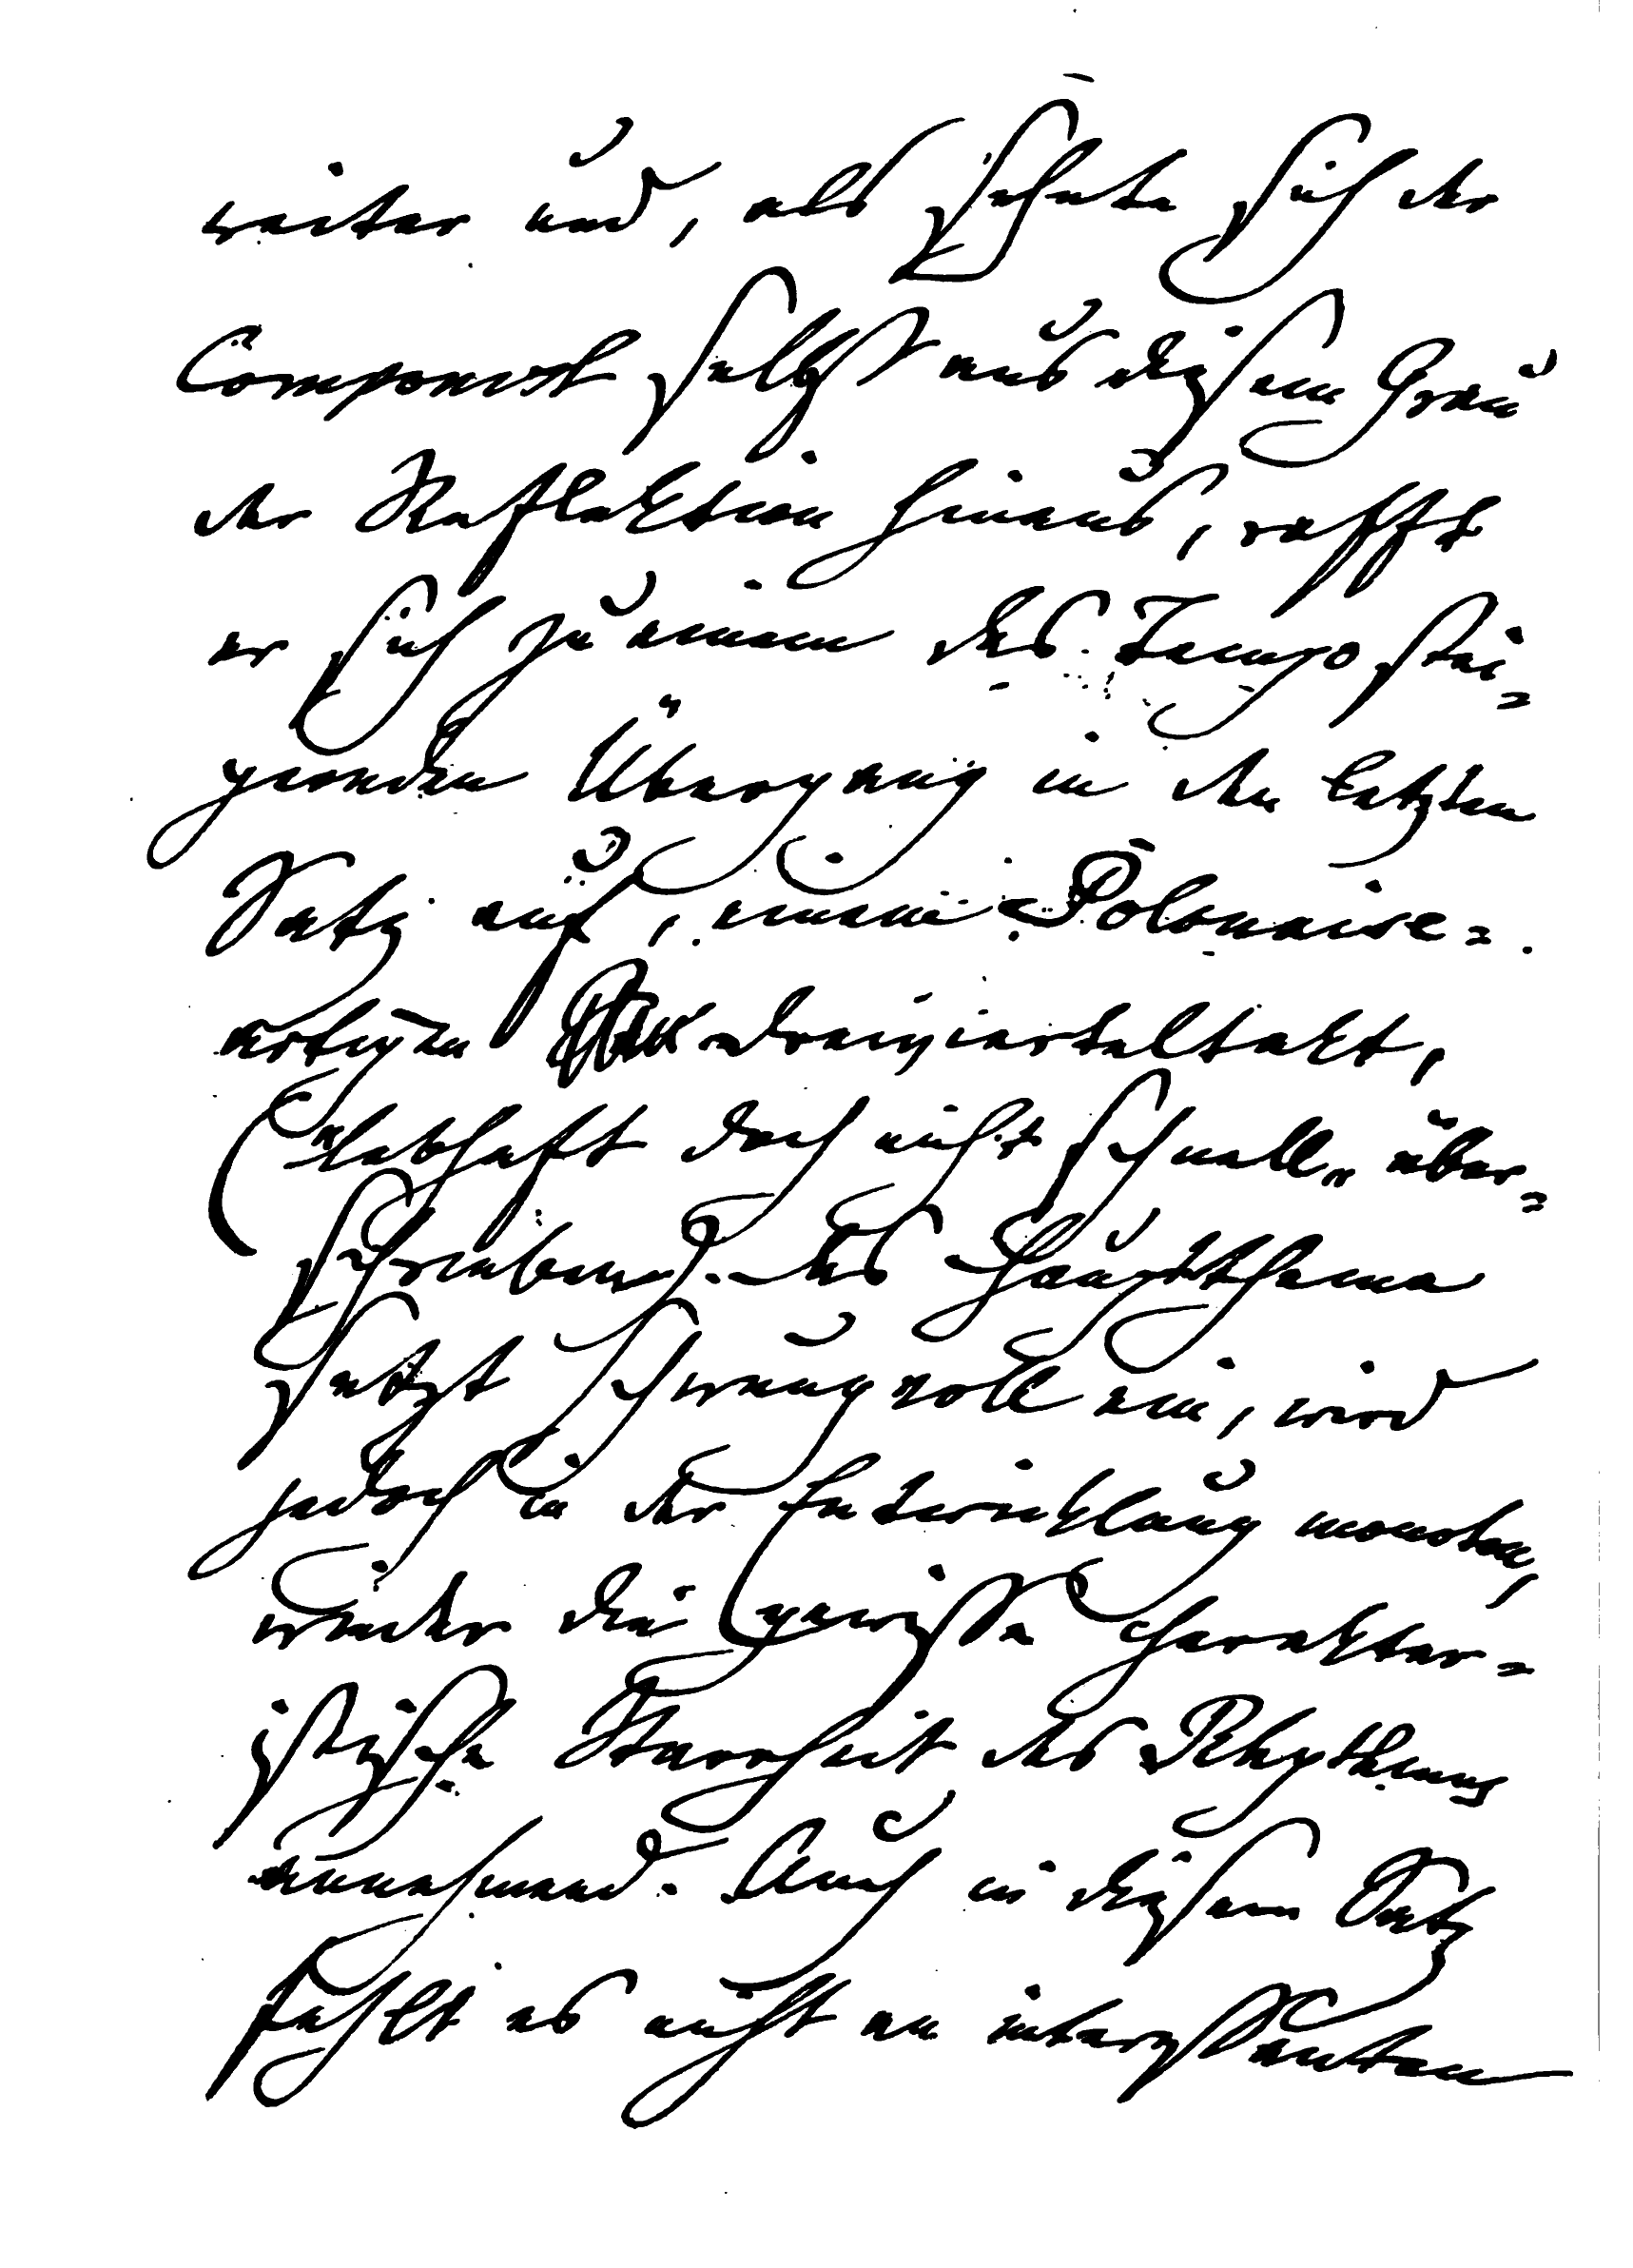 weiter und, als sehnte sich der
Componist selbst aus diesem Grau
der Reflektion hinaus, rafft
er sich zu einem das Tempo stei=
gernden Übergang in den letzten
Satz auf, einem Polonaise=
artigen Dreivierteltakt,
(„lebhaft doch nicht schnell„ über=
schrieben). Das Hauptthema
setzt schwungvoll ein, wird
jedoch in der Entwicklung monoton,
wieder die gewisse charakter=
istische Starrheit des Rhythmus
annehmend. Auch in diesem Satz
fehlt es nicht an interessanten